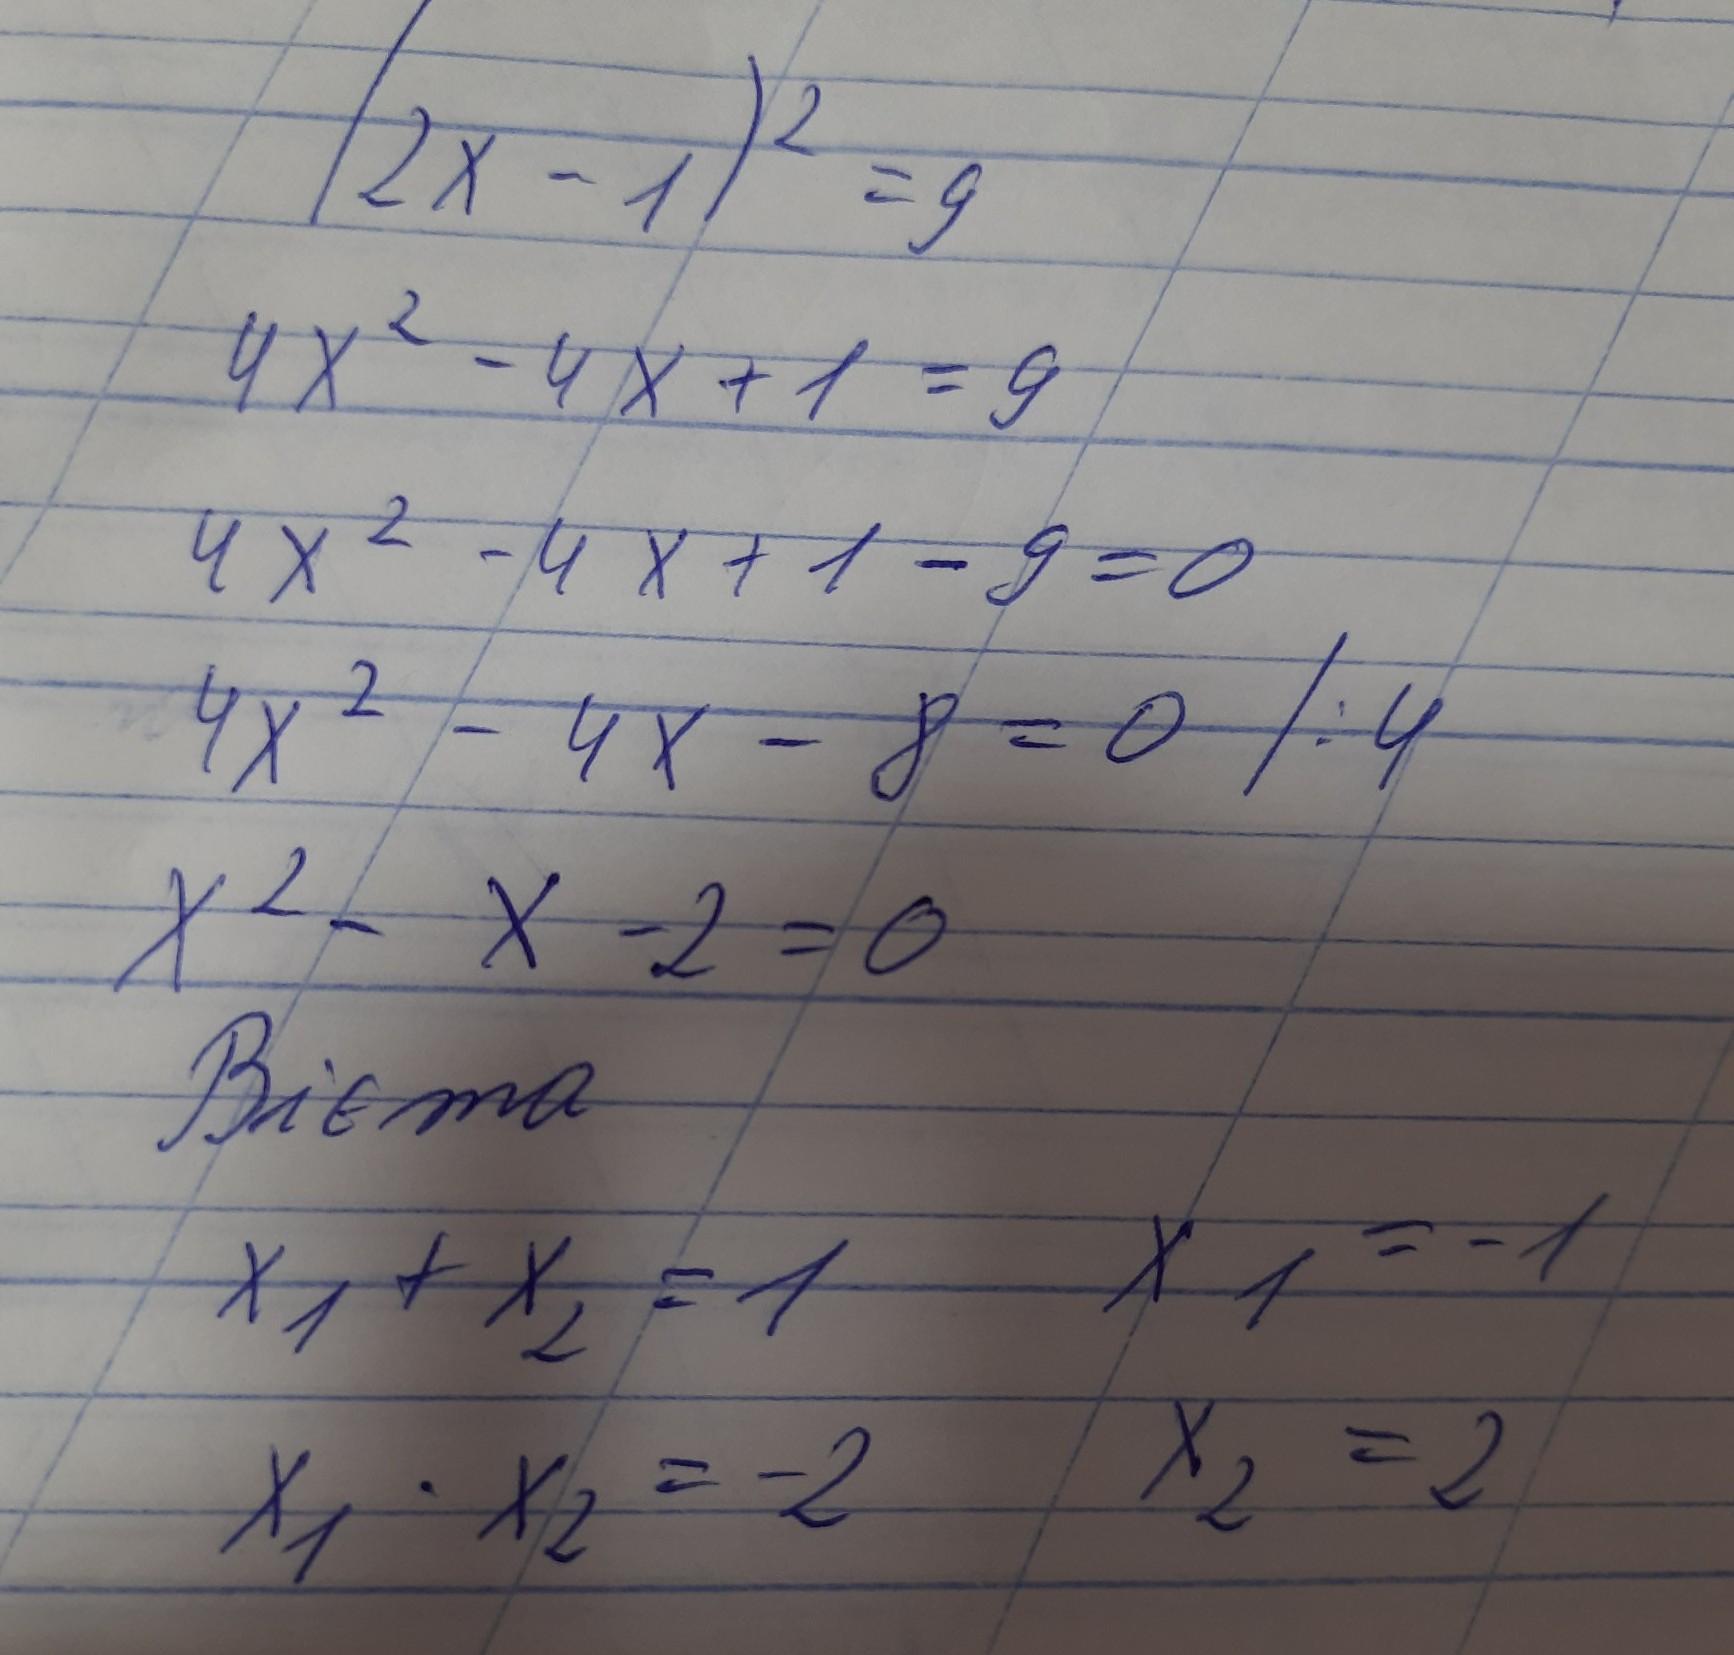 (2x - 1)² = 9
4x² - 4x + 1 = 9
4x² - 4x + 1 - 9 = 0
4x² - 4x - 8 = 0 / : 4
x² - x - 2 = 0
Вієта
x₁ + x₂ = 1 x₁ = -1
x₁ · x₂ = -2 x₂ = 2